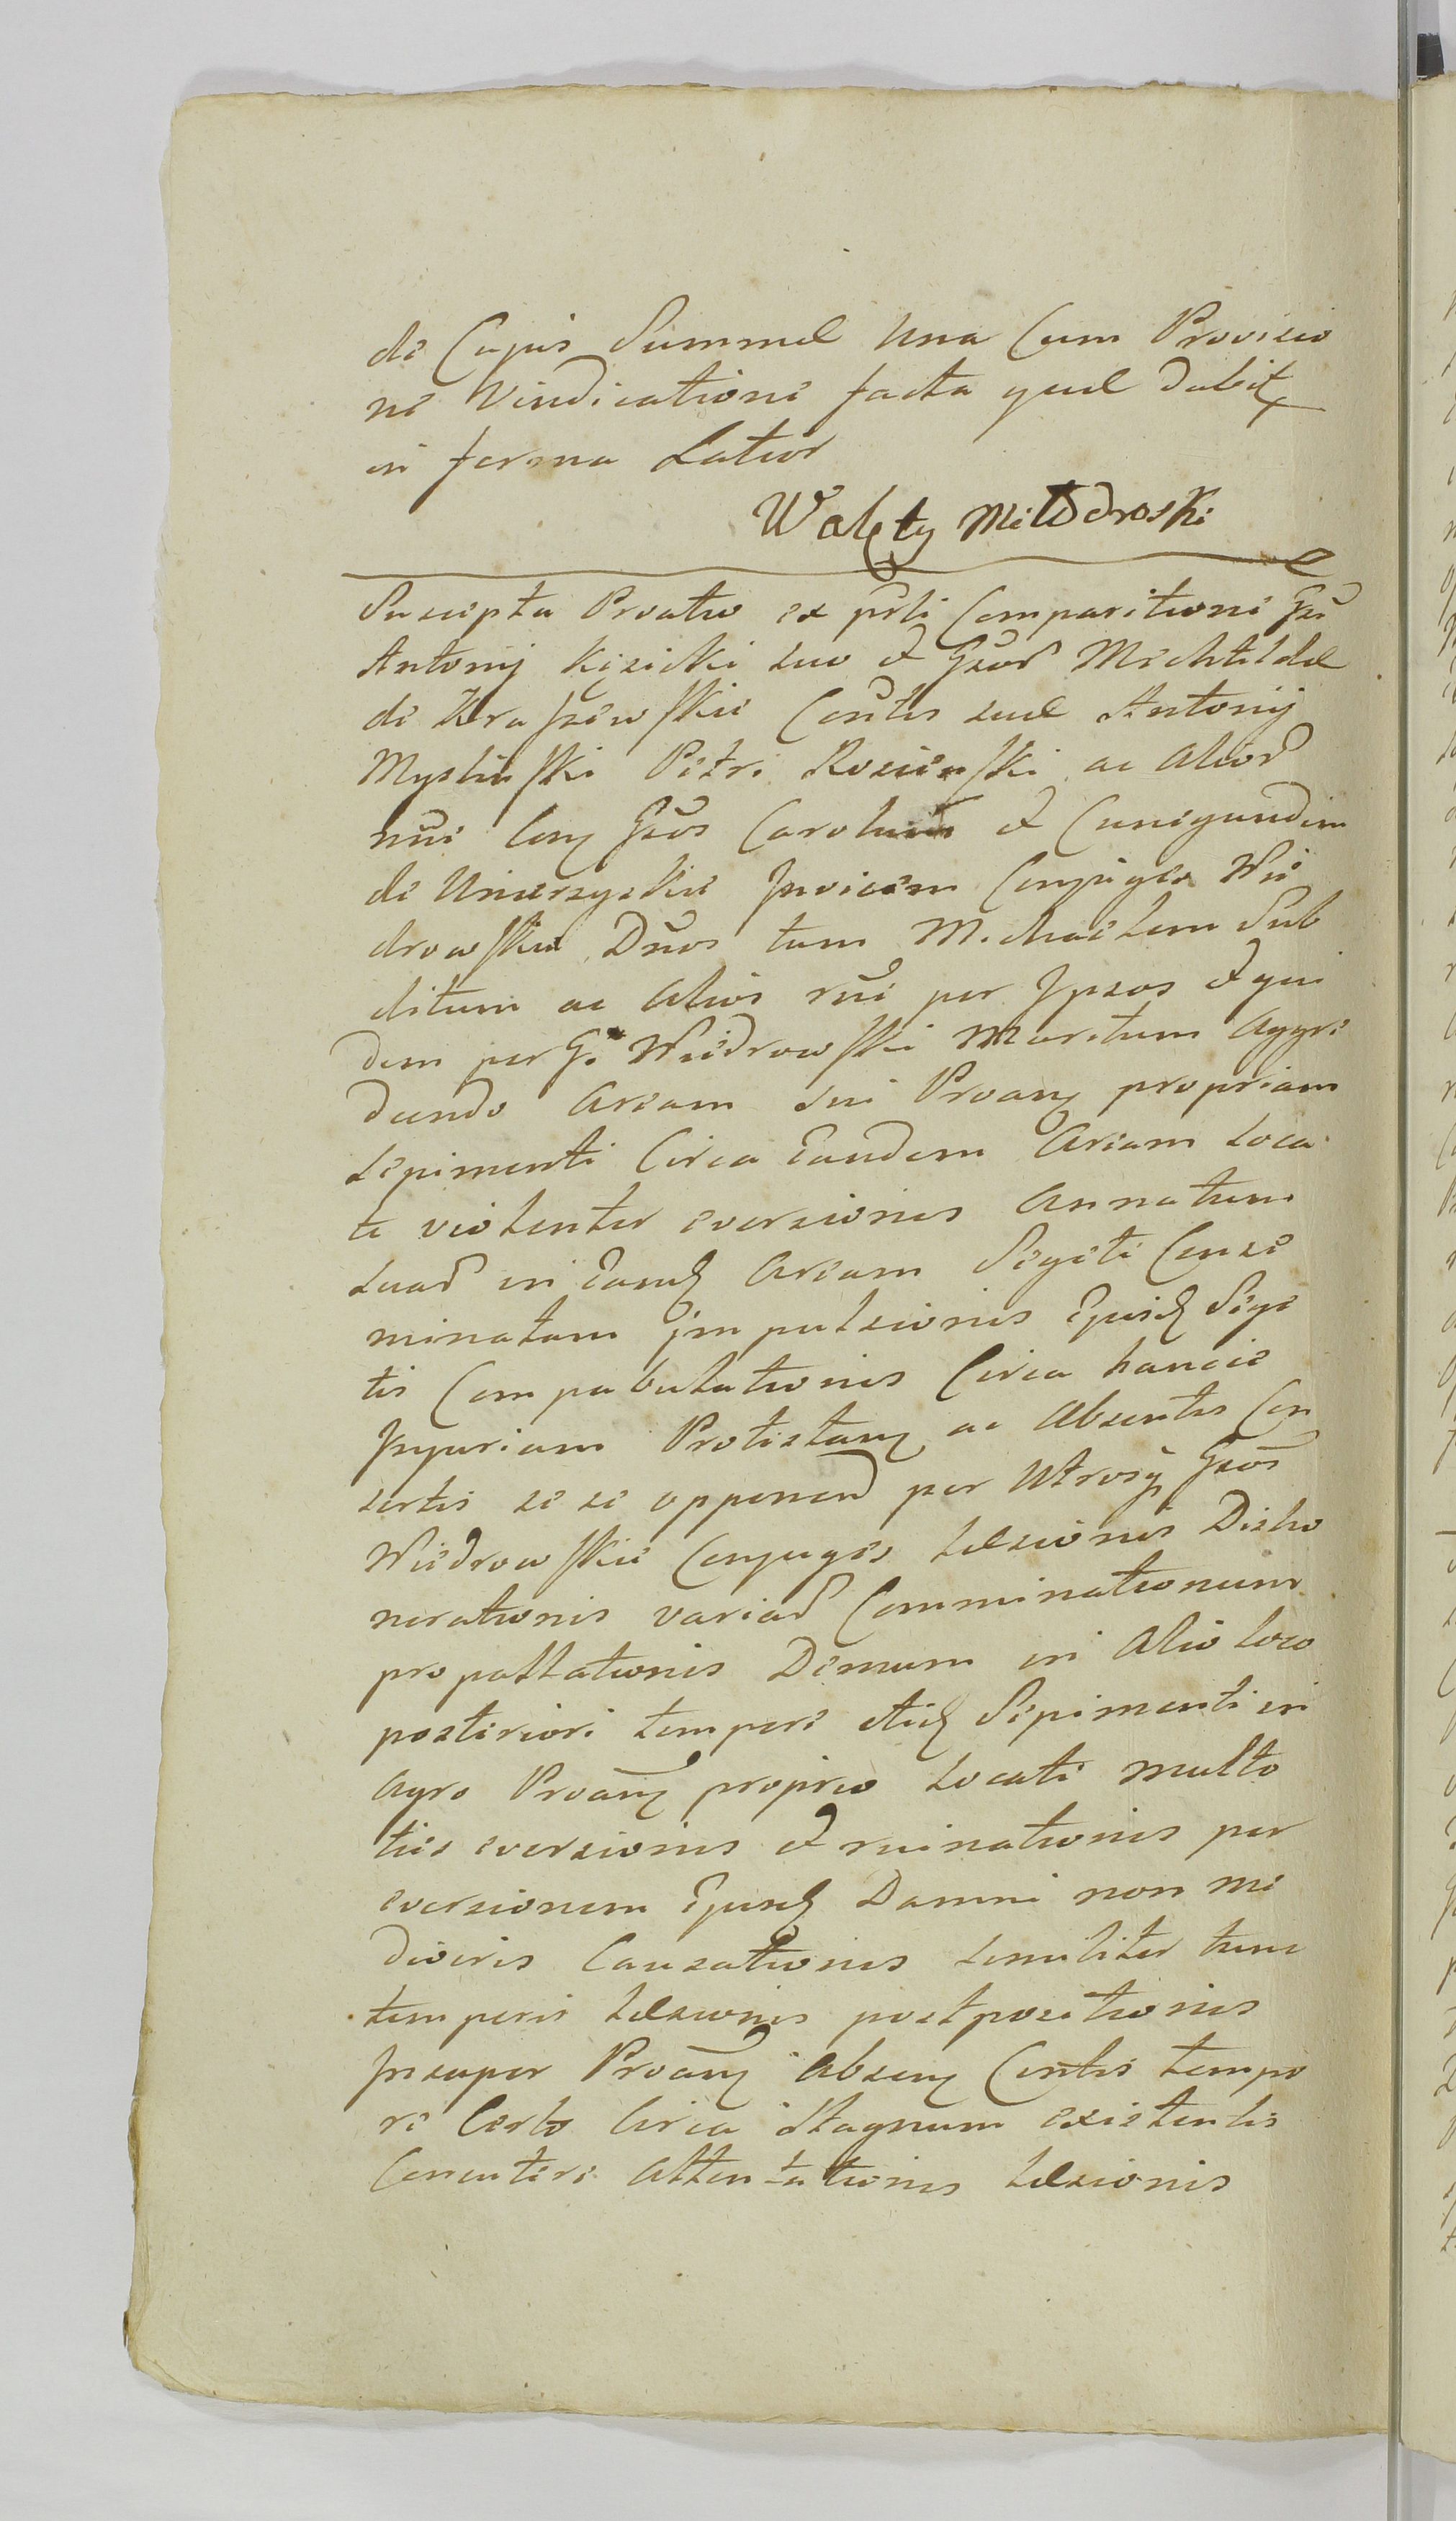 de Cujus Summæ una Cum Provisio
ne Vindicatione facta quæ dabit
in forma Latior
Walęty Miłodroski
Suscepta Prõatio ex pñli Comparitione Gñi
Antonij Kisicki suo et Gñor Mechtildæ
de Kraszewskie Consŭtis suæ Antonij
Myslinski Petri Roscienski ac Alior
nŭe Conŋ Gños Carolum et Cunegundim
de Umerzyskie Invicem Conjuges Wie
drowskie Dños tum Michaelem Sub
ditum ac Alios rŭe per Ipsos et qui
dem per G. Wiedrowski Maritum Aggre
diendo Aream sui Prõanŋ propriam
sepimenti Circa Eandem Aream Loca
ti violenter eversionis Annatum
suar in Eand Aream Segeti Conse
minatam Impulsionis Ejusd Sege
tis Compabulationis Circa hancce
Injuriam Protestanŋ ac Absentis Con
sortis se se opponen per Utrosq Gños
Wiedrowskie Conjuges læsionis Disho
norationis variar Comminationum
propallationis Demum in Alio loco
posteriori tempore Atid Sepimenti in
Agro Prõanŋ proprio Locati multo
ties eversionis et ruinationis per
eversionem Ejusd Damni non me
diocris Causationis similiter tunc
temporis læsionis postpositionis
Insuper Prõanŋ Absenŋ Contis tempo
re Certo Circa Stagnum existentis
Concutere Attentationis læsionis